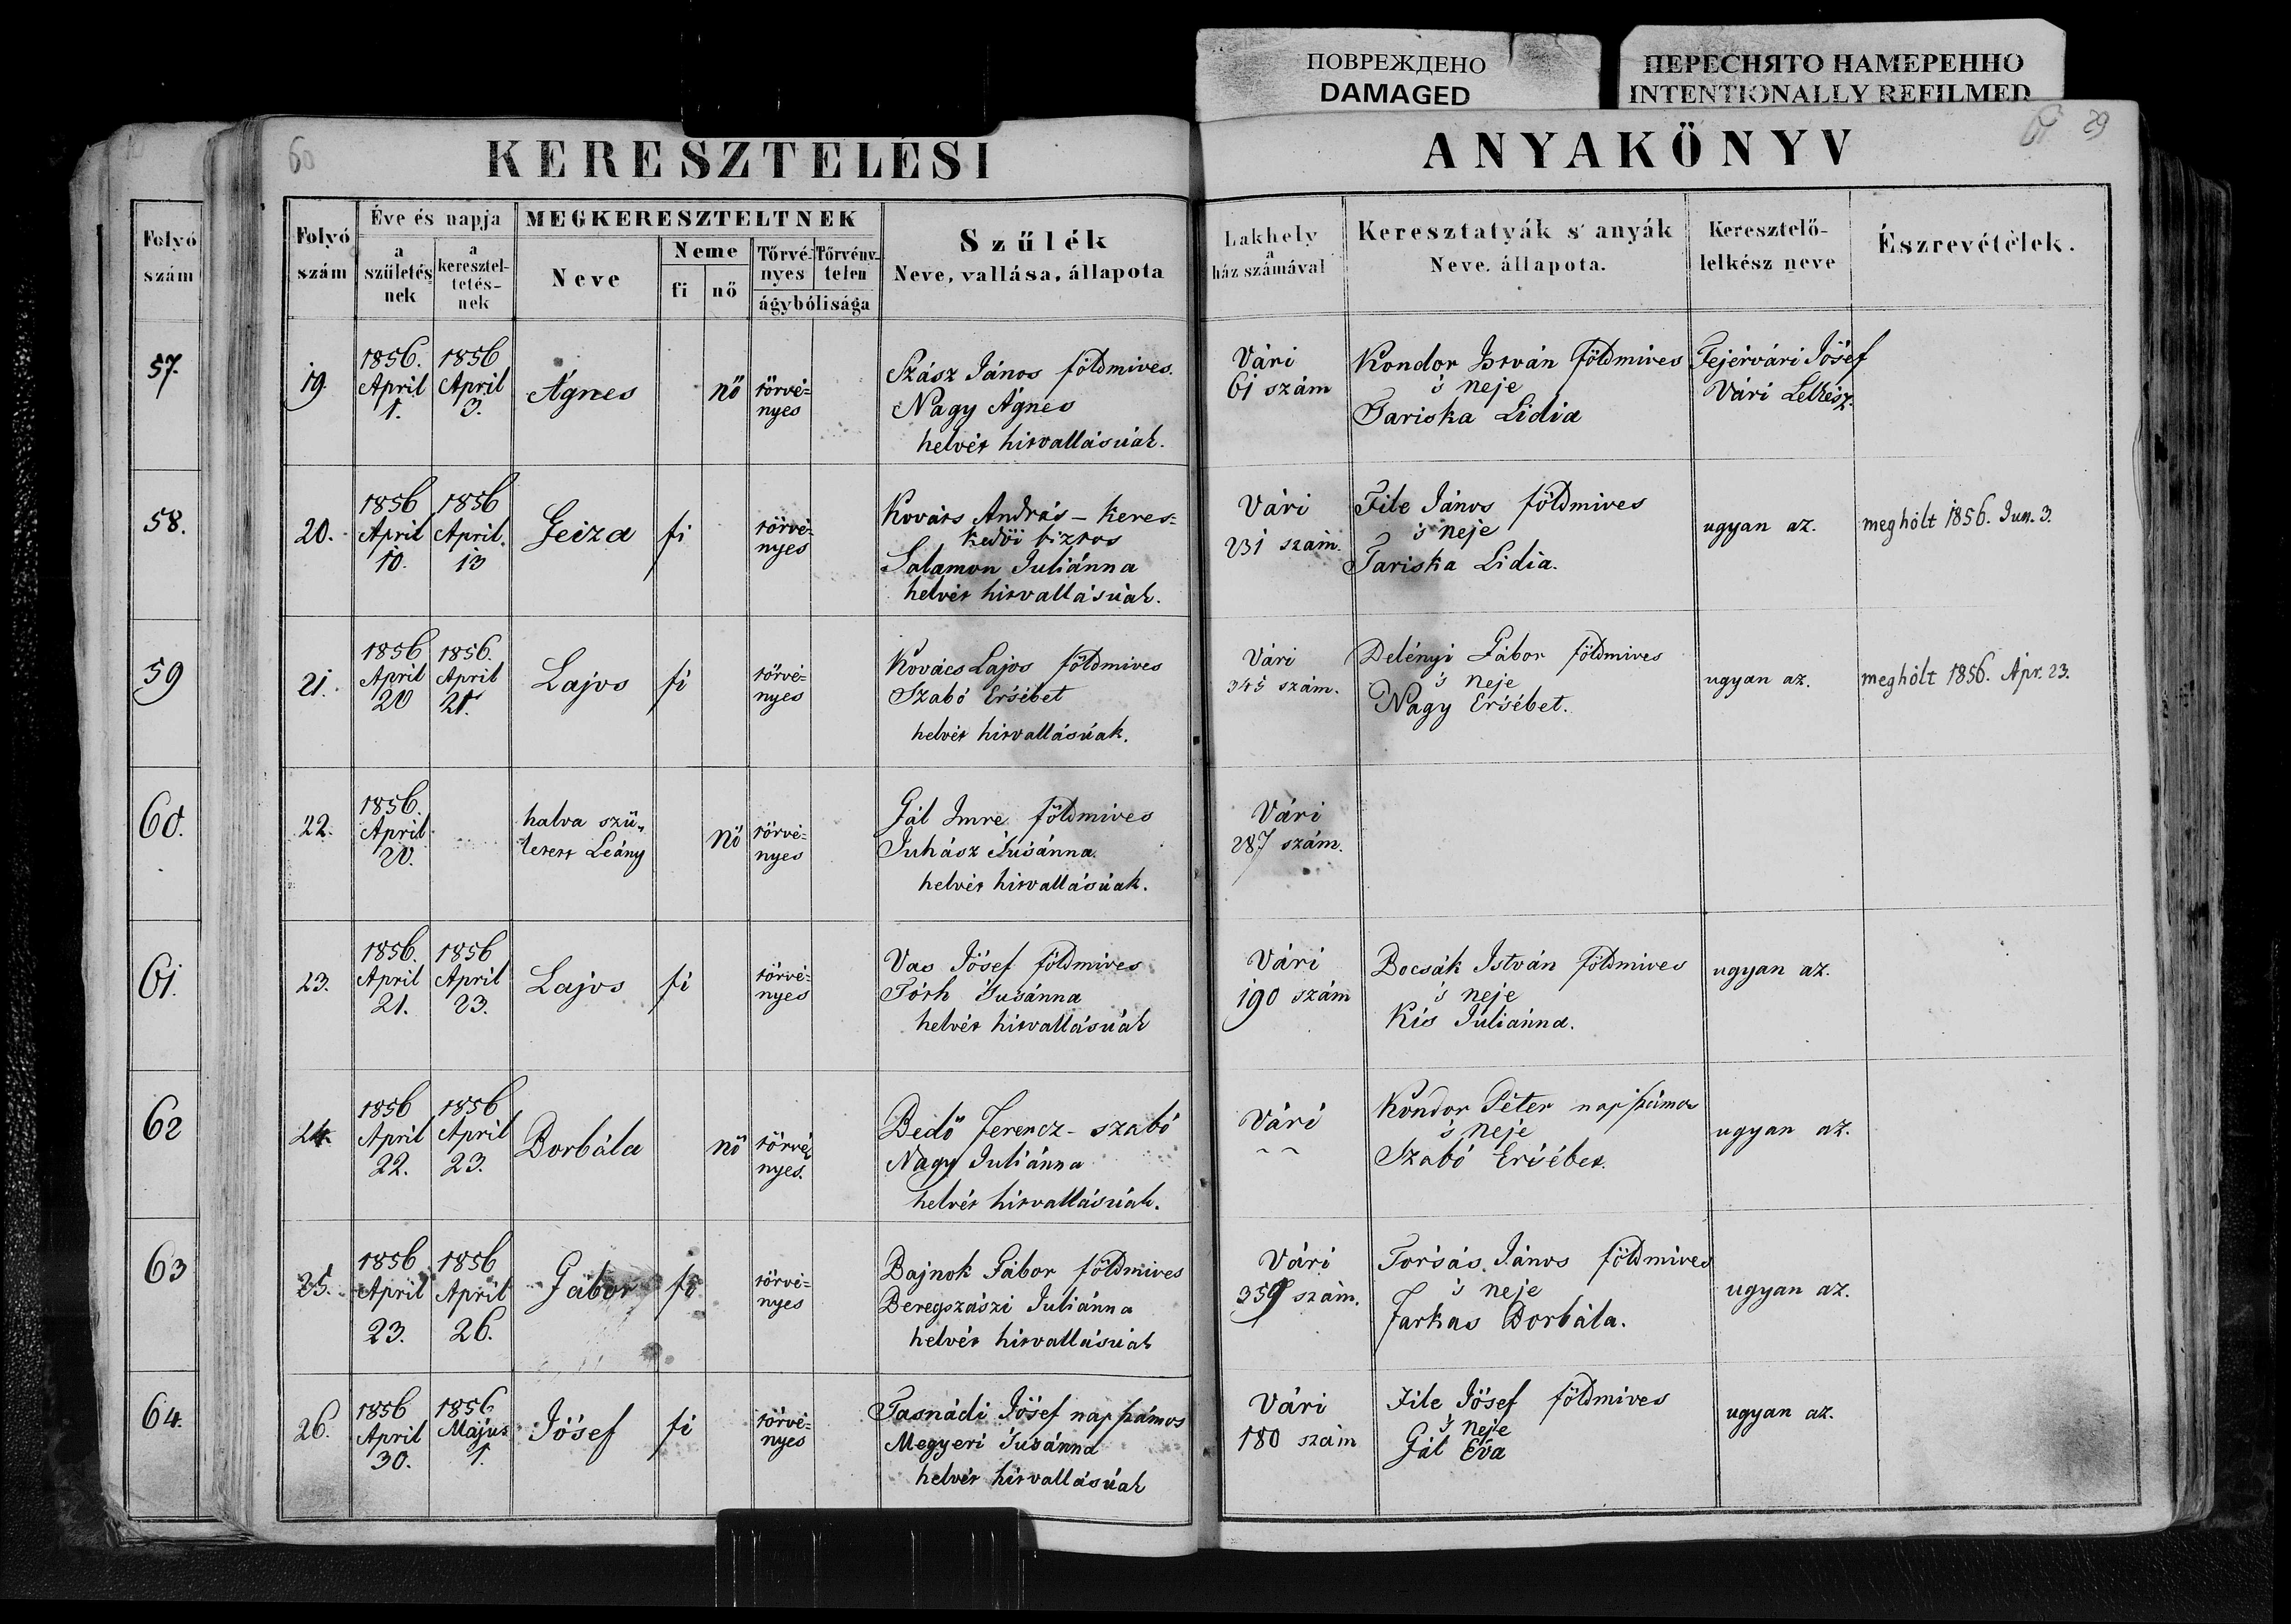 ПОВРЕЖДЕНО
DAMAGED
ПЕРЕСНЯТО НАМЕРЕННО
INTENTIONALLY REFILMED
60
KERESZTELÉSI
ANYAKÖNYV
29
Folyó
szám
57.
58.
59
60.
61.
62
63
64.
Folyó
szám
Éve és napja
a
születés
nek
a
keresztel-
tetés-
nek
MEGKERESZTELTNEK
Neve
Neme
fi
nő
Törvé-
nyes
Törvény-
telen
ágybólisága
Szűlék
Neve, vallása, állapota
Lakhely
a
ház számával
Keresztatyák s' anyák
Neve, állapota.
Keresztelő-
lelkész neve
Észrevételek.
19.
1856.
April
1.
1856
April
3.
Ágnes
nő
törvé=
nyes
Szász János földmives.
Nagy Ágnes
helvét hitvallásúak.
Vári
61 szám
Kondor István földmives
's neje
Tariska Lidia
Fejérvári Jósef
Vári Lelkész.
20.
1856
April
10.
1856
April.
13
Geiza
fi
törvé=
nyes
Kováts András – keres=
kedöi biztos
Salamon Juliánna
helvét hitvallásúak.
Vári
231 szám.
File János földmives
's neje
Tariska Lidia.
ugyan az.
meghólt 1856. Jun. 3.
21.
1856
April
20
1856.
April
21.
Lajos
fi
törvé=
nyes
Kovács Lajos földmives
Szabó Ersébet
helvét hitvallásúak.
Vári
345 szám.
Delényi Gábor földmives
's neje
Nagy Ersébet.
ugyan az.
meghólt 1856. Apr. 23.
22.
1856.
April
20.
halva szü„
letett Leány
nő
törvé=
nyes
Gál Imre földmives
Juhász Susánna.
helvét hitvallásúak.
Vári
287 szám.
23.
1856.
April
21.
1856
April
23.
Lajos
fi
törvé=
nyes
Vas Jósef földmives
Tóth Susánna
helvét hitvallásúak
Vári
190 szám
Bocsák István földmives
's neje
Kis Juliánna.
ugyan az.
24.
1856
April
22.
1856
April
23.
Borbála
nő
törvé=
nyes.
Bedő Ferencz – szabó
Nagy Juliánna
helvét hitvallásúak.
Vári
~ ~
Kondor Péter napszámos
's neje
Szabó Ersébet.
ugyan az.
25.
1856
April
23.
1856
April
26.
Gábor
fi
törvé=
nyes
Bajnok Gábor földmives
Beregszászi Juliánna
helvét hitvallásúak
Vári
359 szám.
Forsás János földmives
's neje
Farkas Borbála.
ugyan az.
26.
1856
April
30.
1856
Május
1.
Jósef
fi
törvé=
nyes
Tasnádi Jósef napszámos
Megyeri Susánna
helvét hitvallásúak
Vári
180 szám
File Jósef földmives
's neje
Gál Éva
ugyan az.